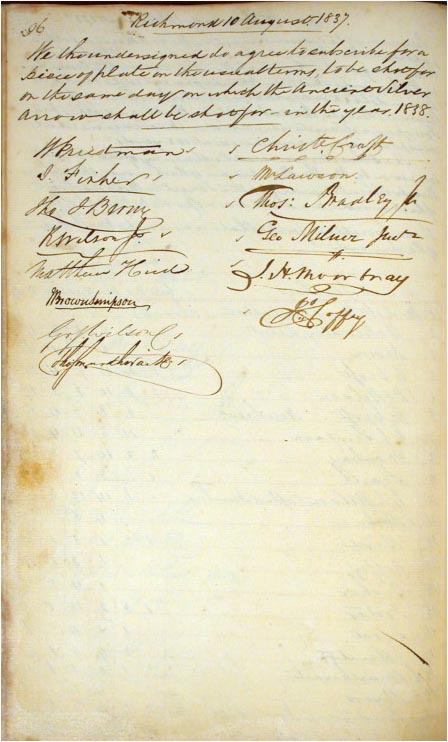 96
Richmond 10 August 1837.
We the undersigned do agree to subscribe for a
piece of plate on the usual terms, to be shot for
on the same day on which the Ancient Silver
Arrow shall be shot for in the year 1838.
W Priestman
J. Fisher
Thos J Brown
R Wilson Jr
Matthew Hind
W Brown Simpson
Christr Craft
Wm Lawson
Thos: Bradley Jr
Geo Milner Junr
J. H. Moorbray
Jos Coffey